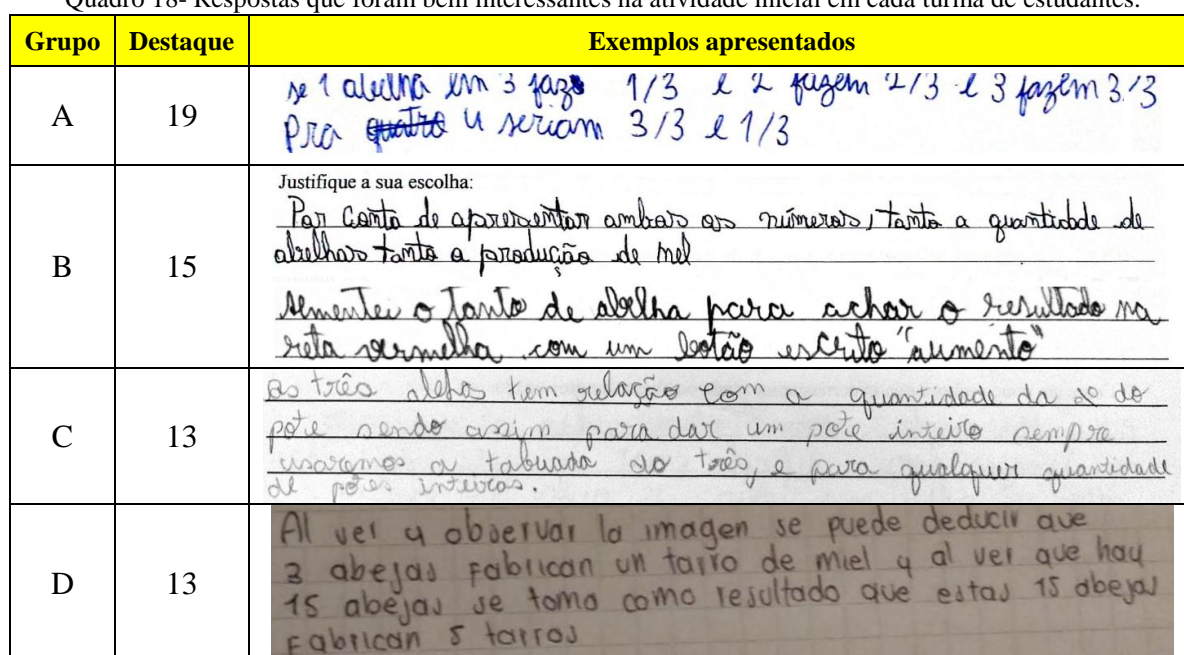 Quadro 18- Respostas que foram bem interessantes na atividade inicial em cada turma de estudantes.
Grupo Destaque Exemplos apresentados
A 19
se 1 abelha em 3 faze 1/3 e 2 fazem 2/3 e 3 fazem 3/3
Pra quatro 4 seriam 3/3 e 1/3
B 15
Justifique a sua escolha:
Por conta de apresentar ambos os números, tanto a quantidade de
abelhas tanto a produção de mel
Aumentei o tanto de abelha para achar o resultado na
reta vermelha com um botão escrito "aumento"
C 13
as três alehas tem relação com a quantidade da do
pote sendo assim para dar um pote inteiro sempre
usaremos a tabuada do três, e para qualquer quantidade
de potes inteiros.
D 13
Al ver y observar la imagen se puede deducir que
3 abejas fabrican un tarro de miel y al ver que hay
15 abejas se toma como resultado que estas 15 abejas
Fabrican 5 tarros